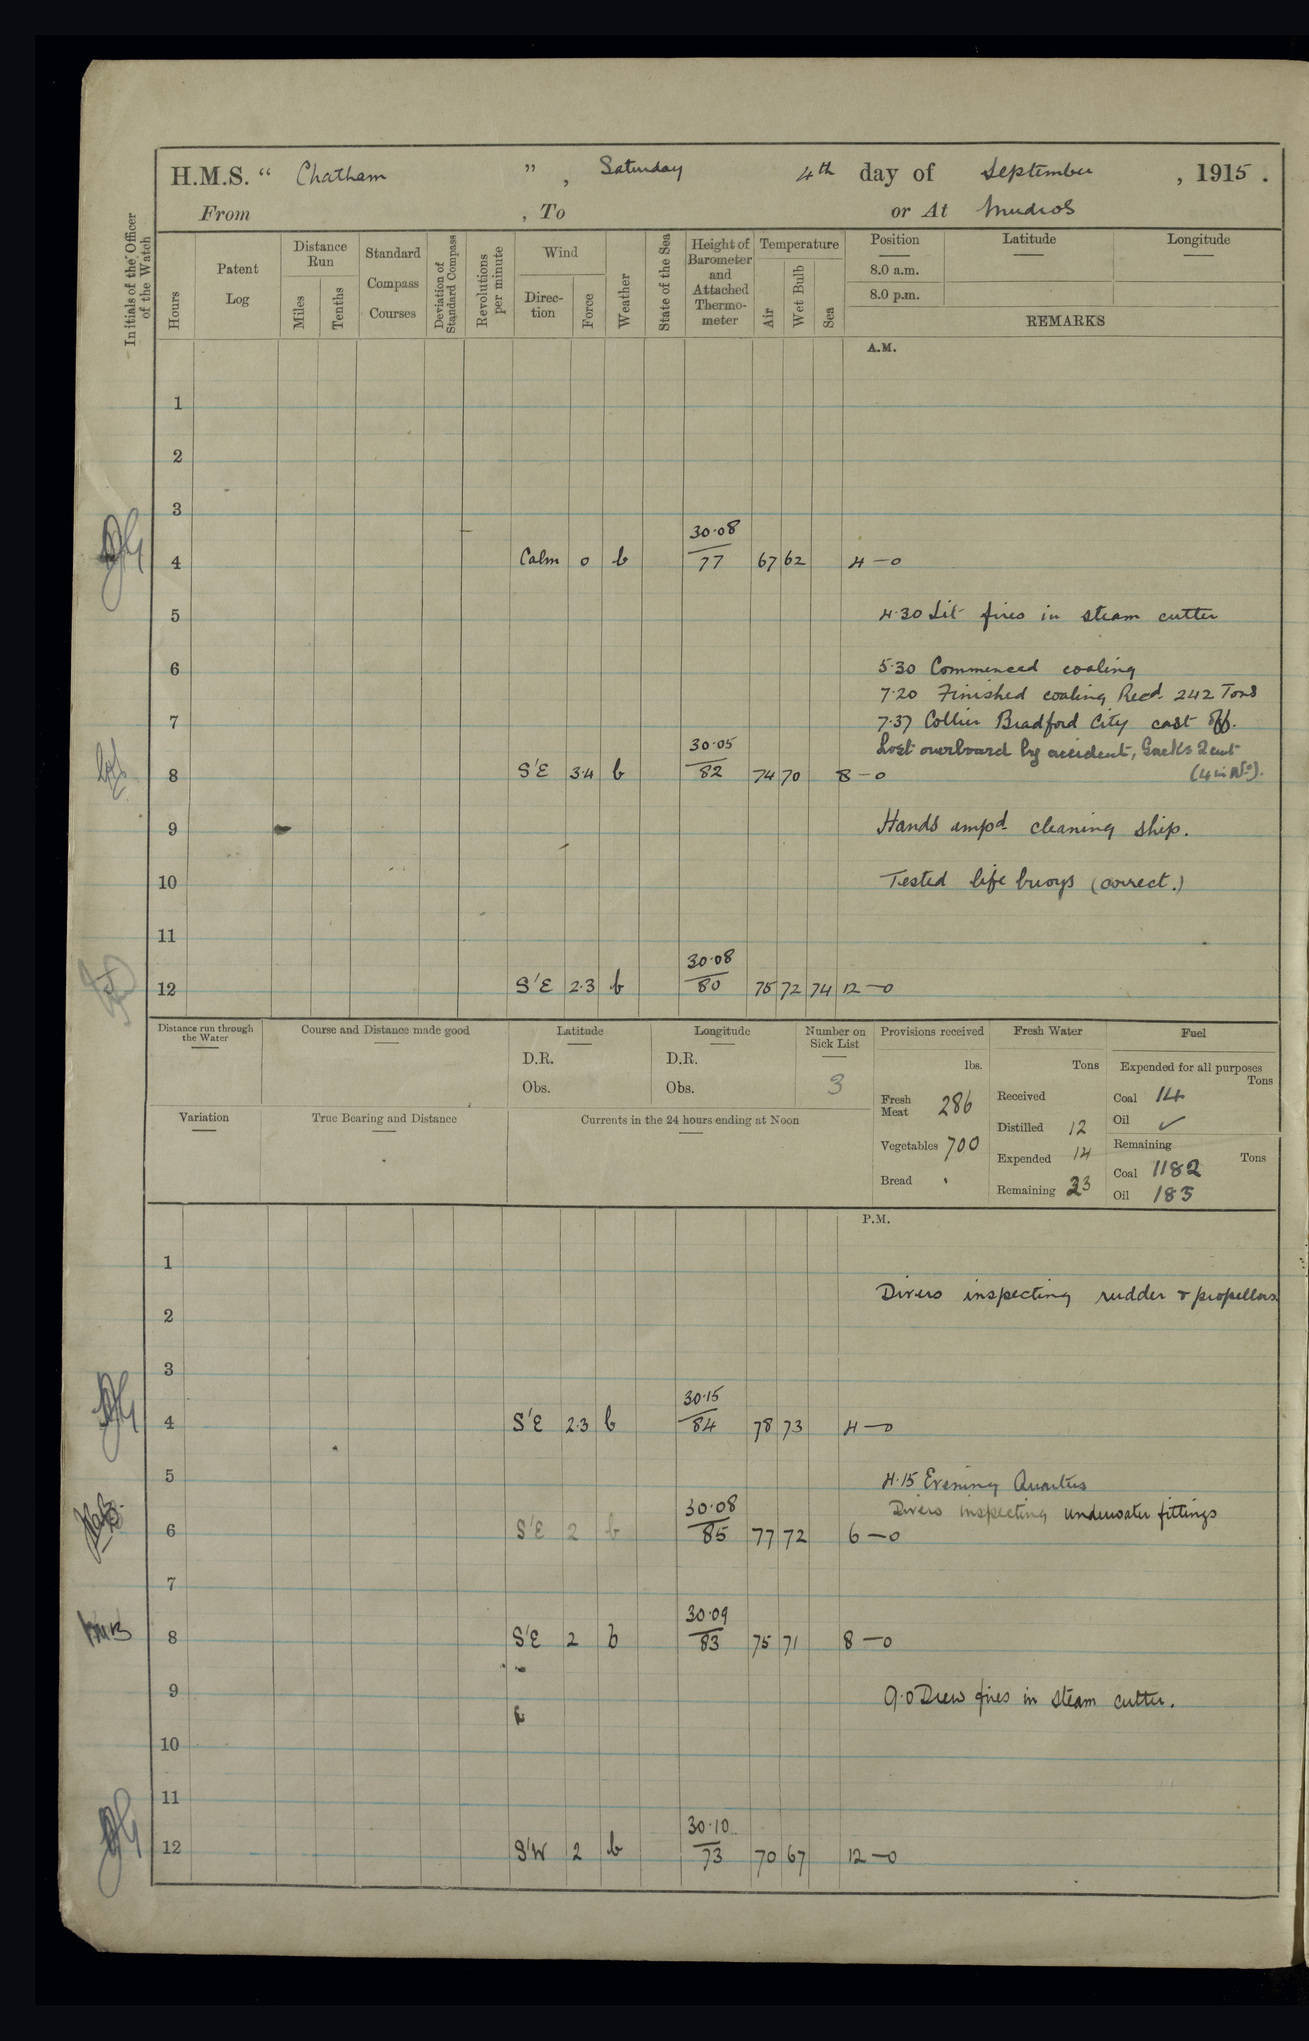 H.M.S. “ Chatham ” , Saturday 4th day of September , 1915 .
From , To or At Mudros
Initials of the Officer of the Watch
Hours
Patent Log
Distance Run
Miles
Tenths
Standard Compass Courses
Deviation of Standard Compass
Revolutions per minute
Wind
Direc-tion
Force
Weather
State of the Sea
Height of Barometer and Attached Thermo-meter
Temperature
Air
Wet Bulb
Sea
Position
8.0 a.m.
8.0 p.m.
Latitude
Longitude
REMARKS
A.M.
1
2
3
4 Calm 0 b 30.08/77 67 62 4—0
5 4.30 Lit fires in steam cutter
6 5.30 Commenced coaling
7.20 Finished coaling Recd. 242 Tons
7 7.37 Collier Bradford City cast off.
Lost overboard by accident, Sacks 2 cwt
8 S'E 3.4 b 30.05/82 74 70 8—0 (4 in No).
9 Hands empd cleaning ship.
10 Tested life buoys (correct.)
11
12 S'E 2.3 b 30.08/80 75 72 74 12—0
Distance run through the Water
Course and Distance made good
Latitude
D.R.
Obs.
Longitude
D.R.
Obs.
Number on Sick List
3
Provisions received
lbs.
Fresh Meat 286
Vegetables 700
Bread
Fresh Water
Tons
Received
Distilled 12
Expended 14
Remaining 23
Fuel
Expended for all purposes
Tons
Coal 14
Oil ✓
Remaining
Tons
Coal 1182
Oil 185
Variation
True Bearing and Distance
Currents in the 24 hours ending at Noon
P.M.
1
Divers inspecting rudder & propellors
2
3
4 S'E 2.3 b 30.15/84 78 73 4—0
5 4.15 Evening Quarters
Divers inspecting underwater fittings
6 S'E 2 b 30.08/85 77 72 6—0
7
8 S'E 2 b 30.09/83 75 71 8—0
9 9.0 Drew fires in steam cutter.
10
11
12 S'W 2 b 30.10/73 70 67 12—0